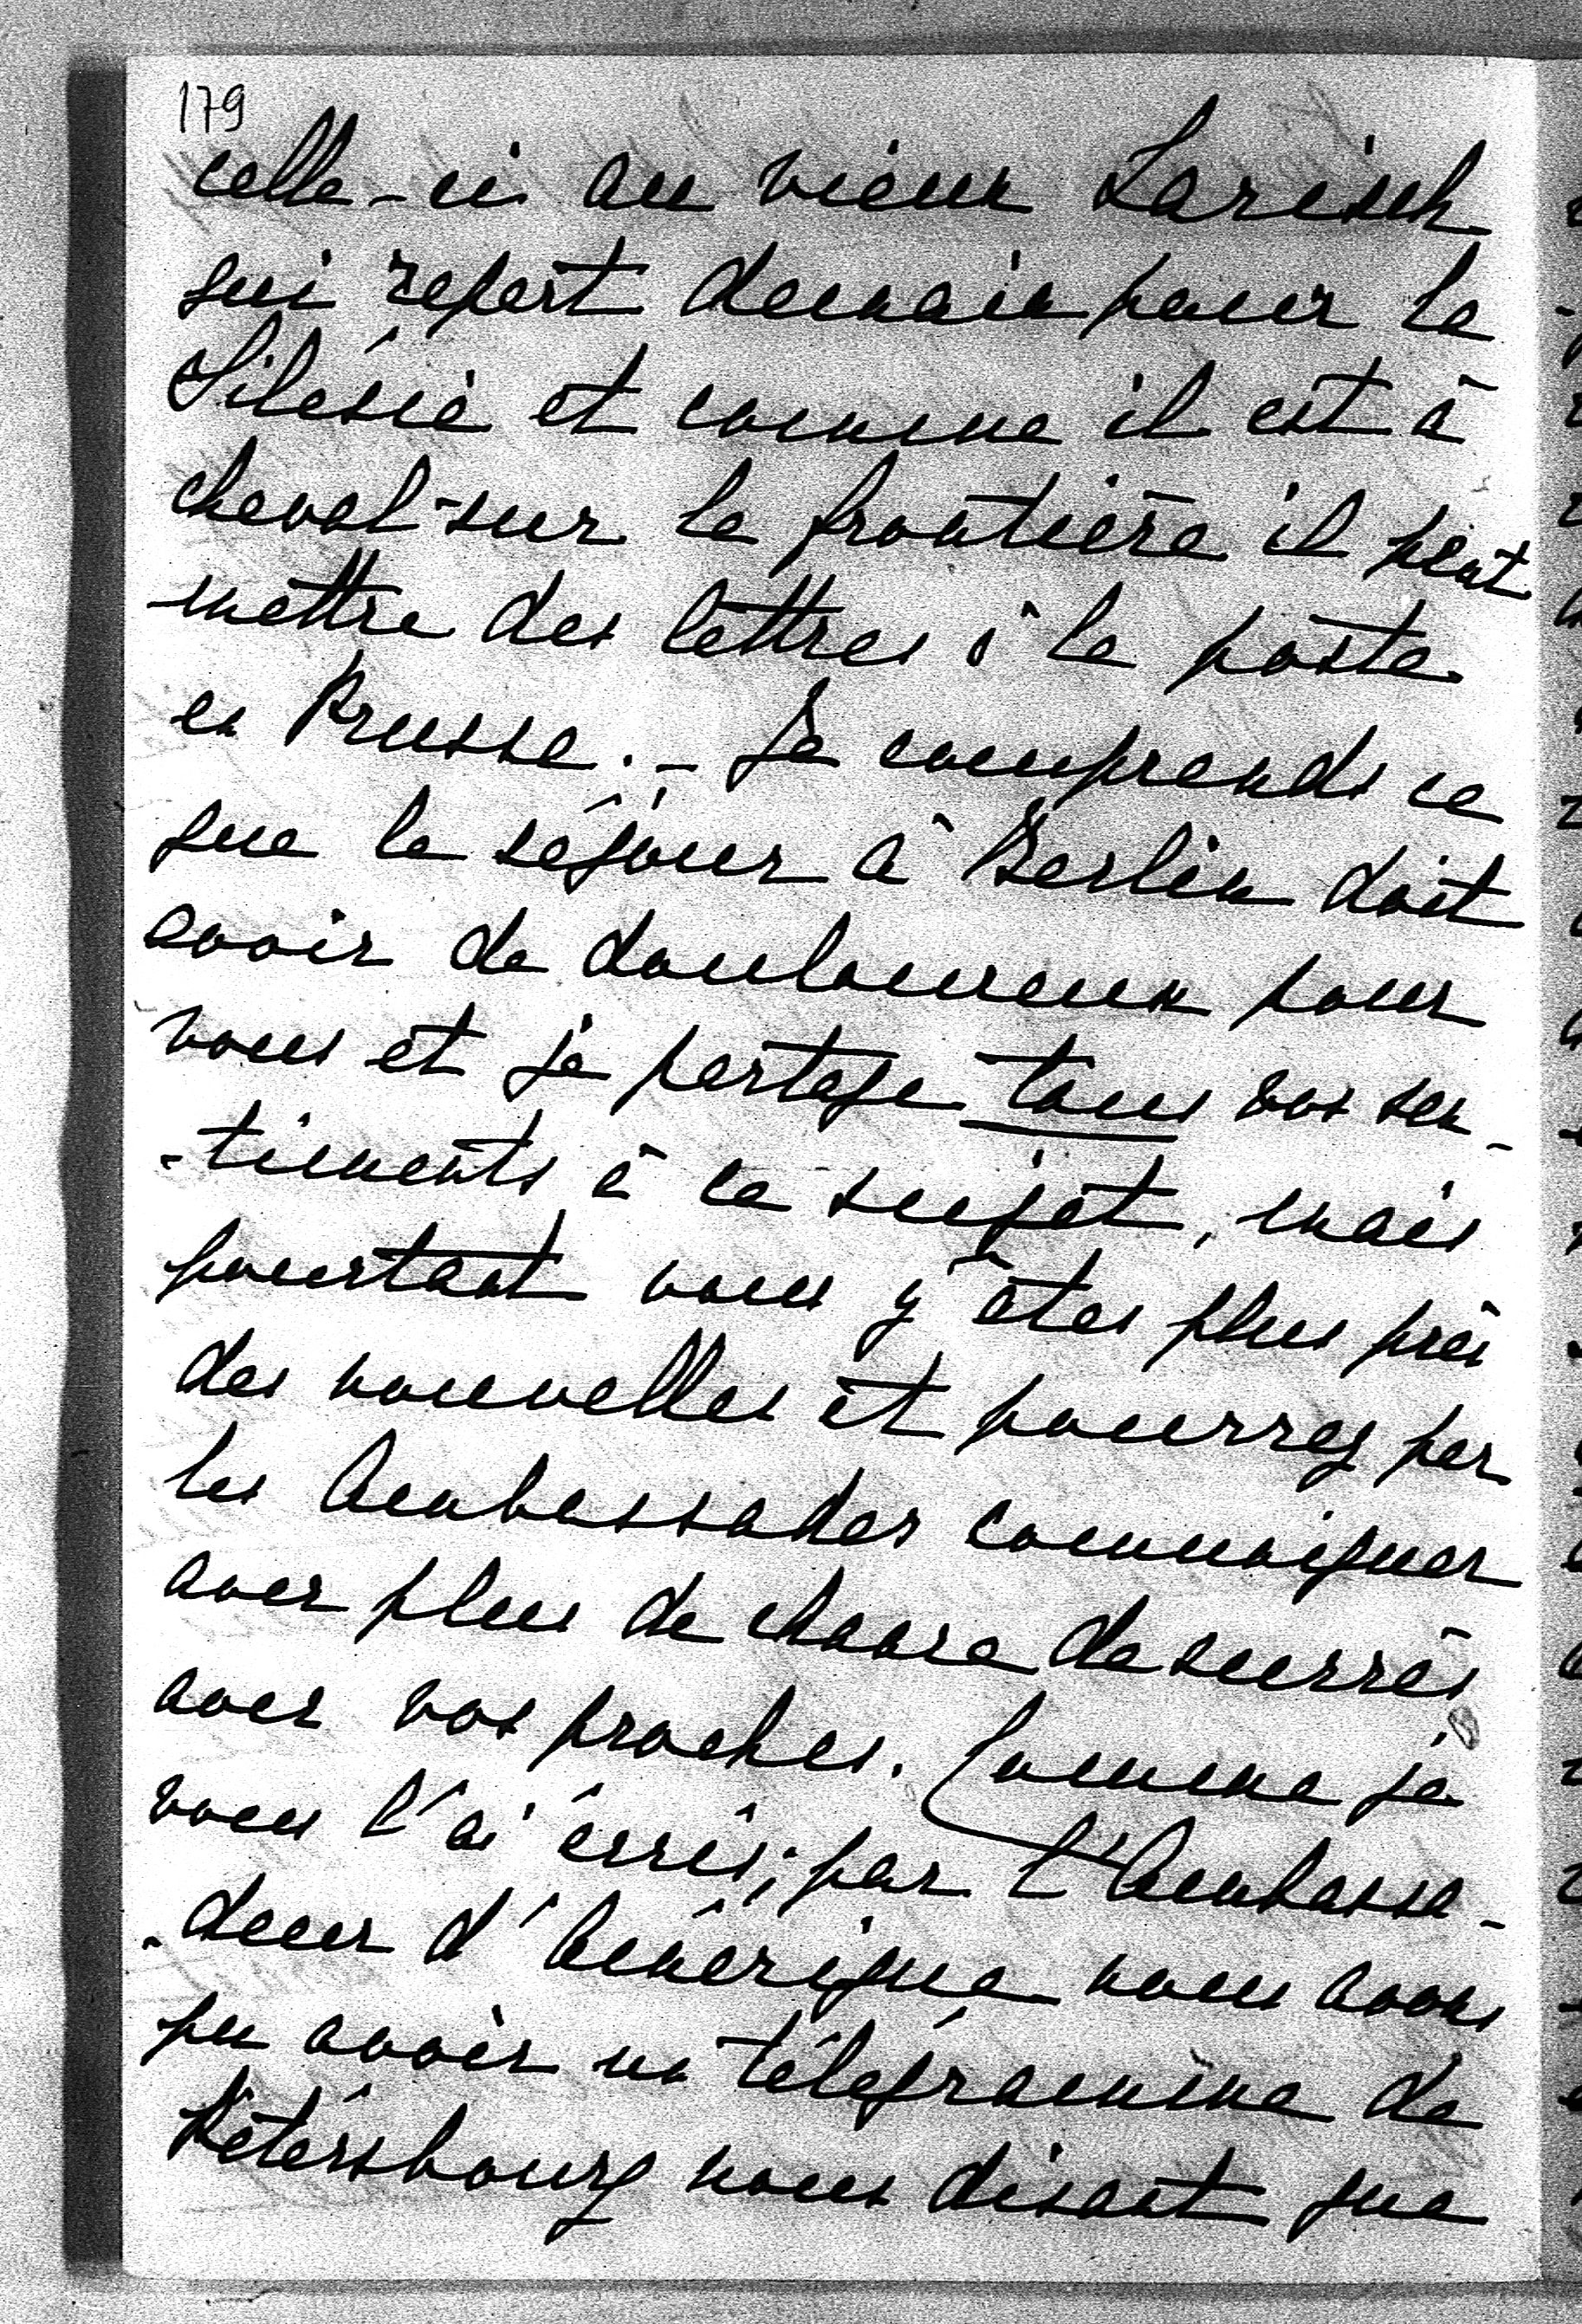 179
celle-ci au vieux Larisch
qui repart demain pour la
Silésie et comme il est à
cheval sur la frontière il peut
mettre des lettres à la poste
en Prusse. - Je comprends ce
que le séjour à Berlin doit
avoir de douloureux pour
vous et je partage tous vos sen-
-timents à ce sujet, mais
pourtant vous y êtes plus près
des nouvelles et pourrez par
les Ambassades communiquer
avec plus de chance de succès
avec vos proches. Comme je
vous l'ai écris, par l'Ambassa-
-deur d'Amérique nous avons
pu avoir un télégramme de
Pétersbourg nous disant que